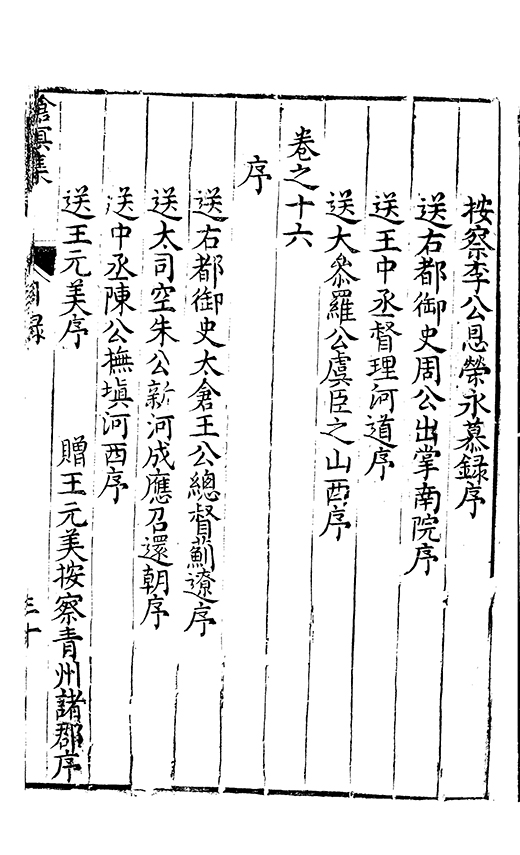 按察李公恩榮永慕録序
送右都御史周公出掌南院序
送王中丞督理河道序
送大叅羅公虞臣之山西序
卷之十六
序
送右都御史太倉王公總督薊遼序
送太司空朱公新河成應召還朝序
送中丞陳公撫填河西序
送王元美序　贈王元美按察青州諸郡序
滄溟集　目録　三十